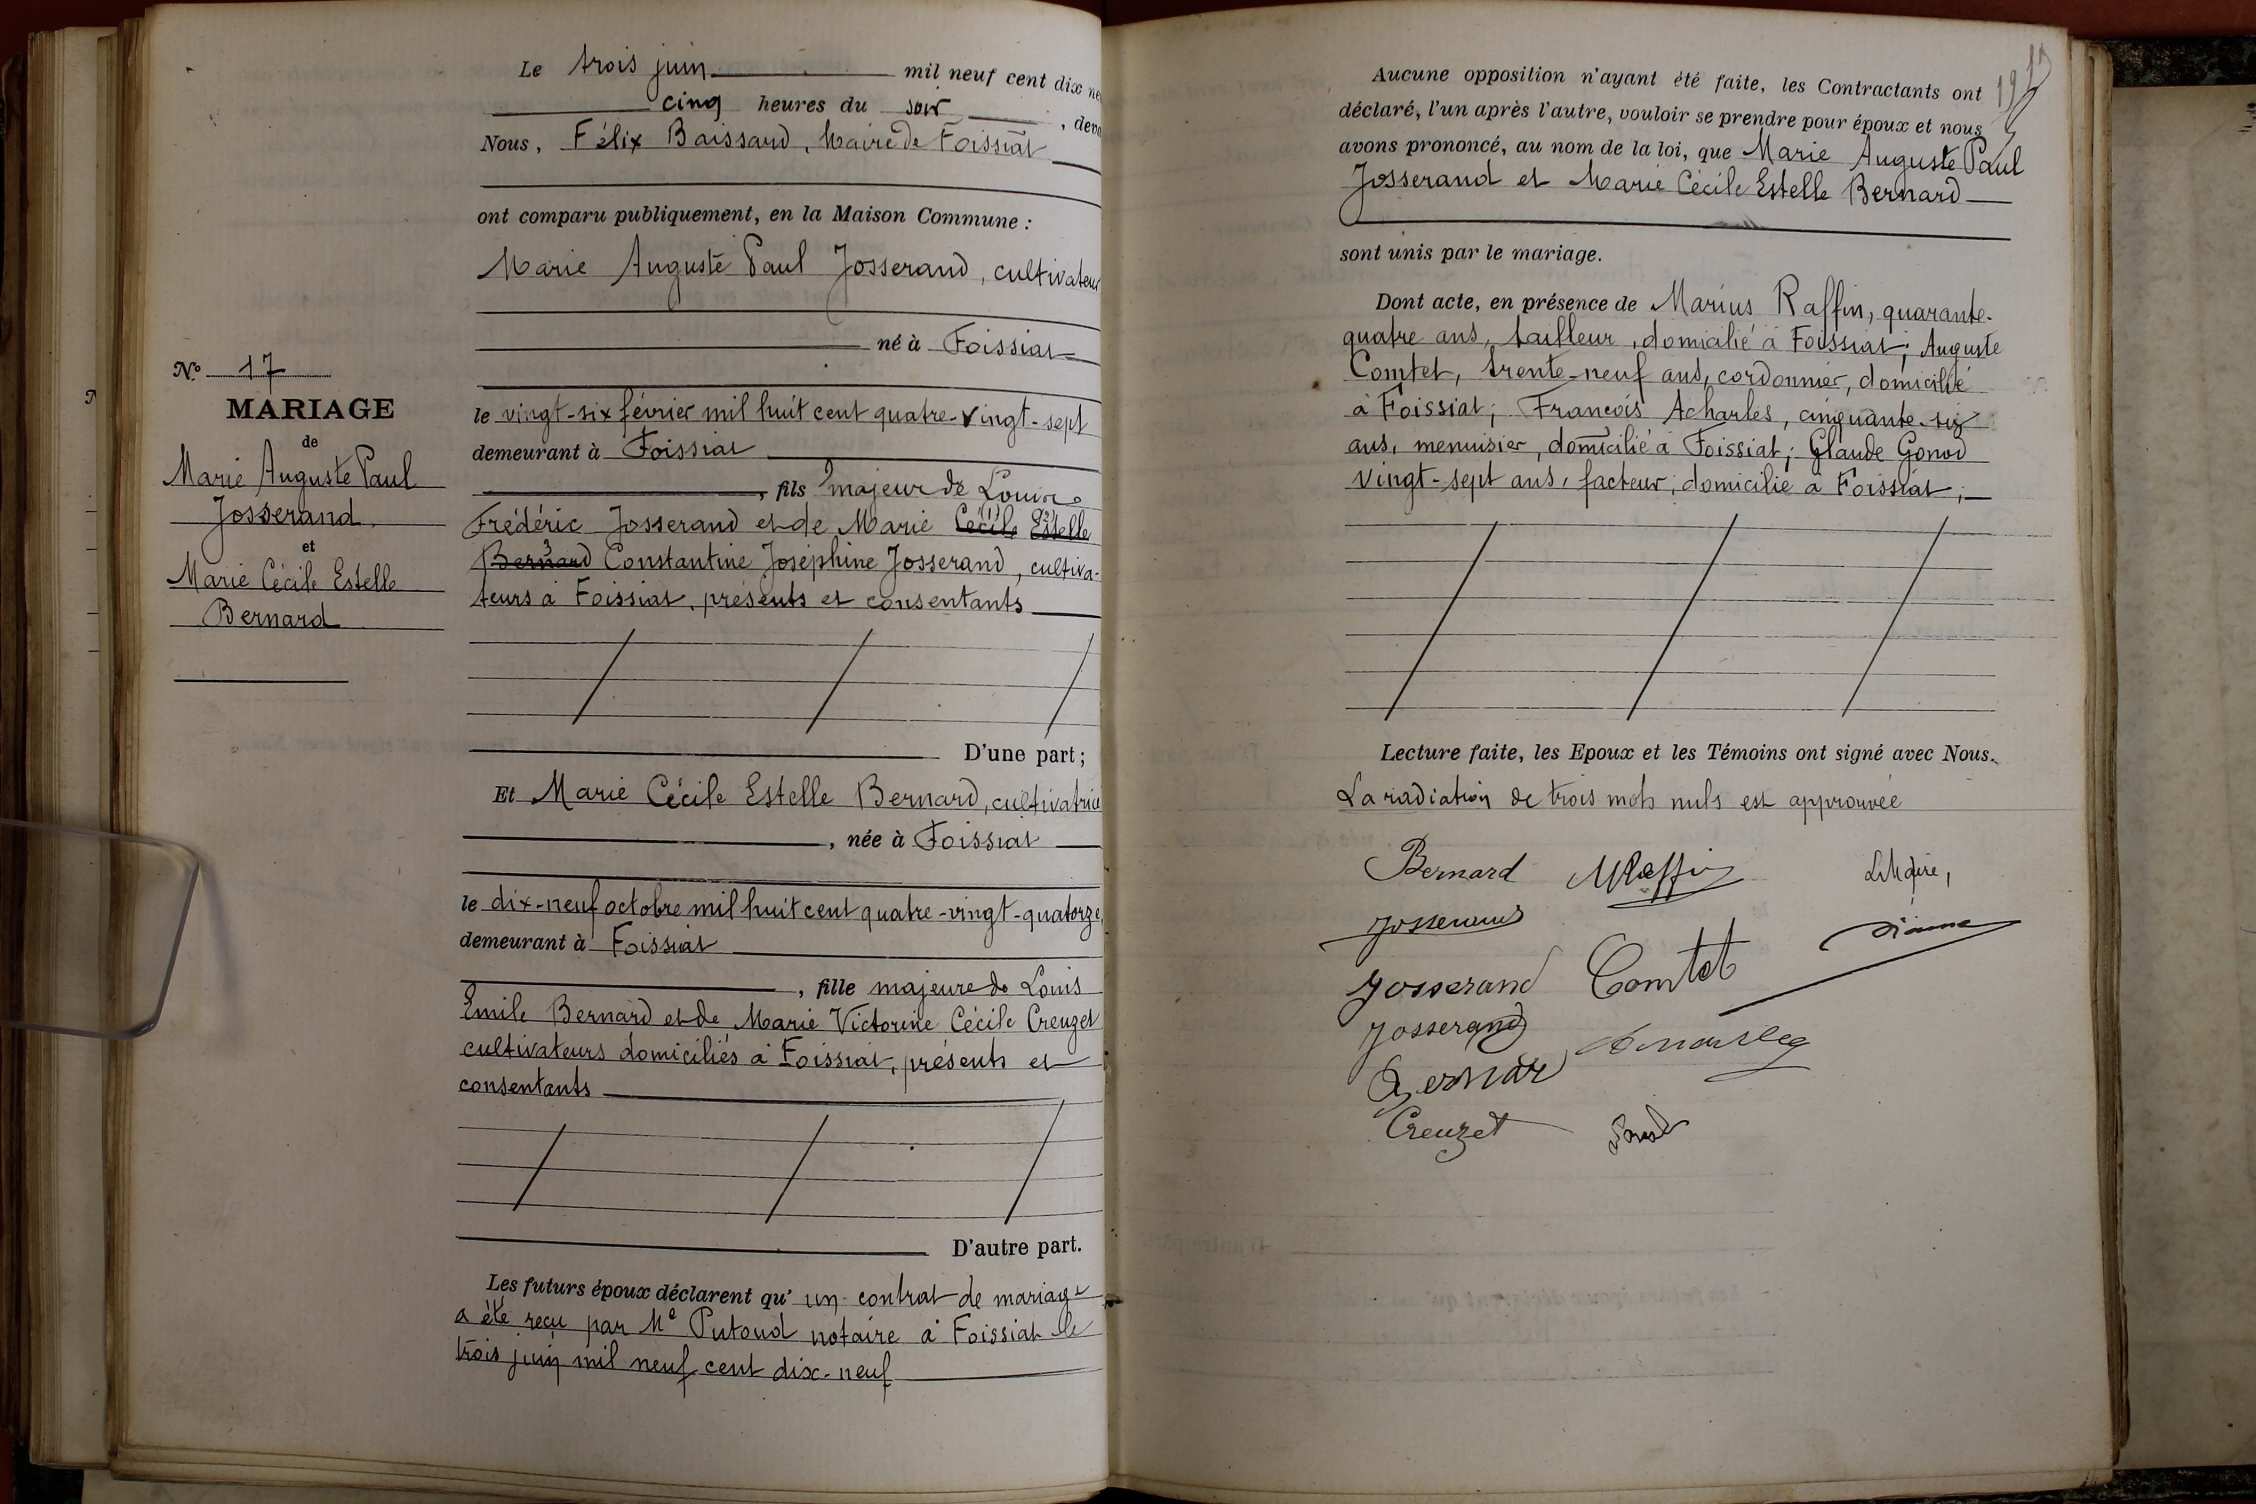 Le trois juin mil neuf cent dix ne
cinq heures du soir, deva
Nous, Félix Baissard, Maire de Foissiat
ont comparu publiquement, en la Maison Commune :
Marie Auguste Paul Josserand, cultivateur
né à Foissiat
le vingt-six février mil huit cent quatre-vingt-sept
demeurant à Foissiat
, fils majeur de Louis
Frédéric Josserand et de Marie (1) Cécile (2) Estelle
3 Bernard Constantine Joséphine Josserand, cultiva-
teurs à Foissiat, présents et consentants
D'une part ;
Et Marie Cécile Estelle Bernard, cultivatrice
, née à Foissiat
le dix-neuf octobre mil huit cent quatre-vingt-quatorze,
demeurant à Foissiat
, fille majeure de Louis
Emile Bernard et de Marie Victorine Cécile Creuzet
cultivateurs domiciliés à Foissiat, présents et
consentants
D'autre part.
Les futurs époux déclarent qu' un contrat de mariage
a été reçu par Me Putoud notaire à Foissiat le
trois juin mil neuf cent dix-neuf
No 17
MARIAGE
de
Marie Auguste Paul
Josserand
et
Marie Cécile Estelle
Bernard
Aucune opposition n'ayant été faite, les Contractants ont
déclaré, l'un après l'autre, vouloir se prendre pour époux et nous
avons prononcé, au nom de la loi, que Marie Auguste Paul
Josserand et Marie Cécile Estelle Bernard
sont unis par le mariage.
Dont acte, en présence de Marius Raffin, quarante-
quatre ans, tailleur, domicilié à Foissiat; Auguste
Comtet, trente-neuf ans, cordonnier, domicilié
à Foissiat; François Acharles, cinquante-six
ans, menuisier, domicilié à Foissiat; Claude Gonod
vingt-sept ans, facteur, domicilié à Foissiat;
Lecture faite, les Epoux et les Témoins ont signé avec Nous.
La radiation de trois mots nuls est approuvée
Bernard MRaffin Le Maire,
Josserand
Josserand Comtet
Josserand
Bernard
Creuzet